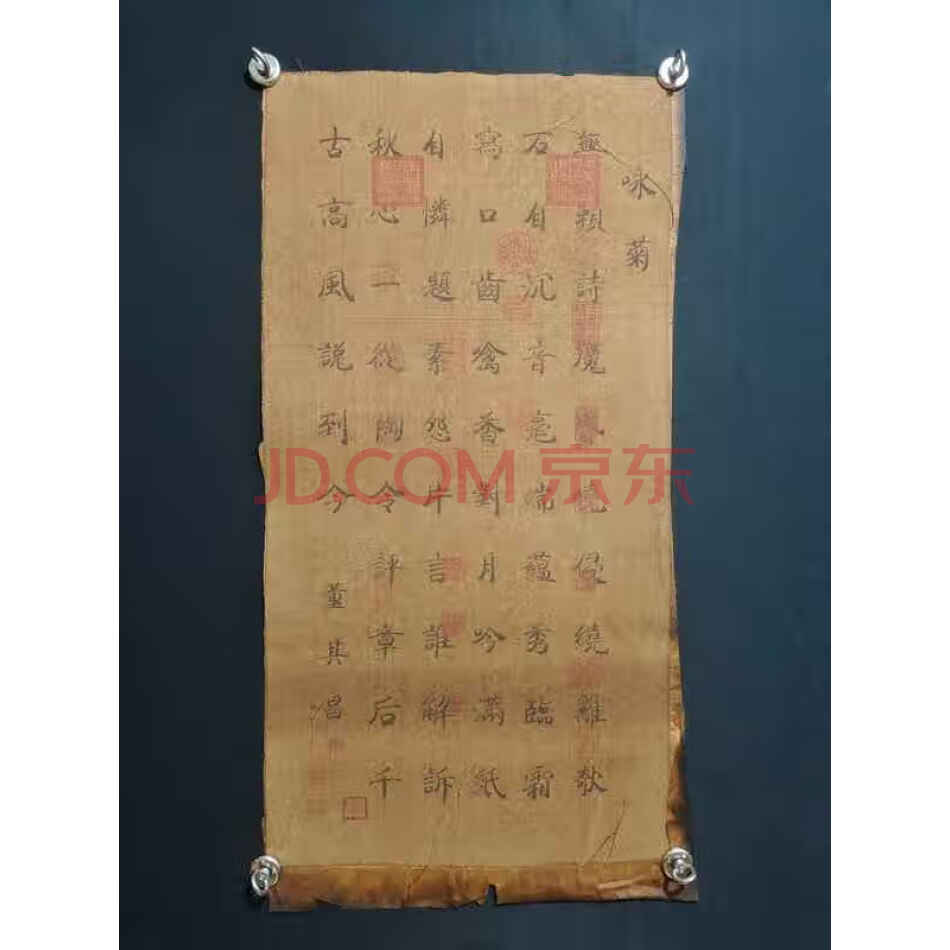 咏菊
無賴詩魔昏曉侵繞籬欹
石自沉音毫端蘊秀臨霜
寫口齒噙香對月吟滿紙
自憐題素怨片言誰解訴
秋心一從陶令評章后千
古高風説到今
董其昌
JD.COM 京东